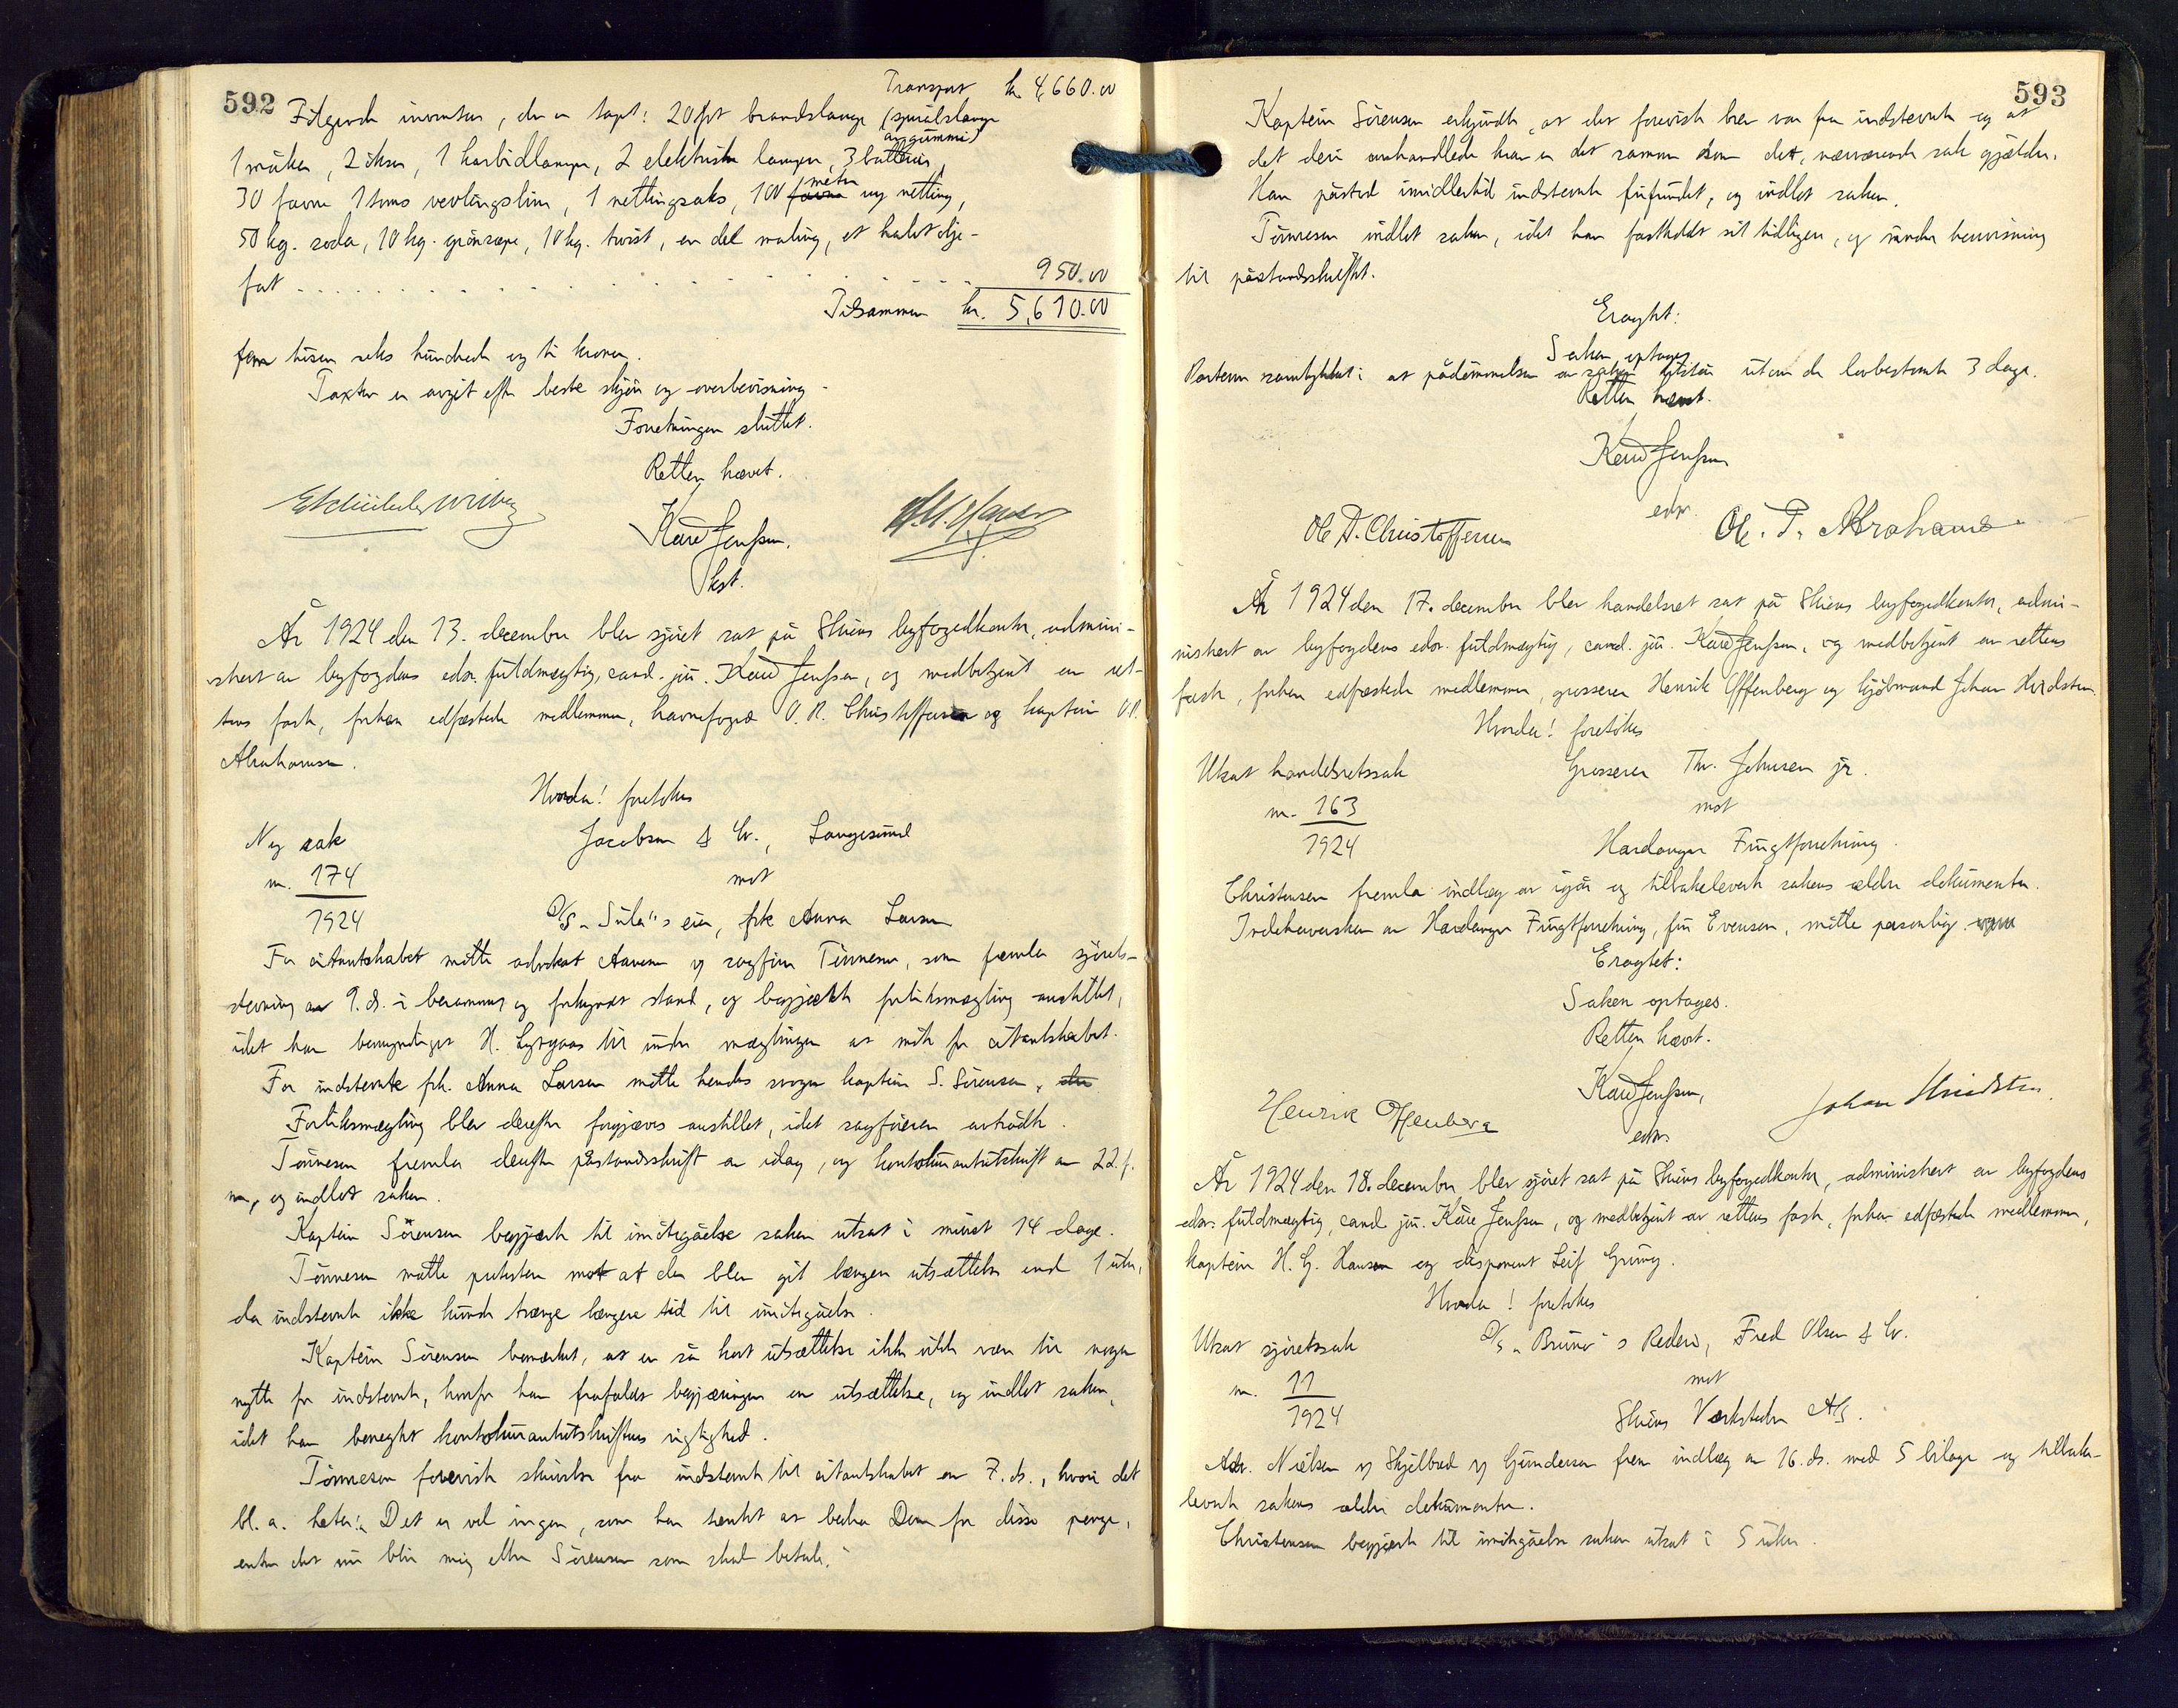 592
Transport kr. 4,660.00
Følgende inventar, der er tapt: 20 fot brandslange (spiralslange
av gummi)
1 måker, 2 økser, 1 karbidlampe, 2 elektriske lamper, 3 batterier,
30 favne 1 toms vevlingsline, 1 nettingsaks, 100 favne meter ny netting,
50 kg. soda, 10 kg. grønsæpe, 10 kg. twist, en del maling, et halvt olje-
fat . . . . . . . . . . 950.00
Tilsammen kr. 5,610.00
fem tusen seks hundrede og ti kroner.
Taxten er avgit efter beste skjøn og overbevisning.
Forretningen sluttet.
Retten hævet.
Kaare Jenssen,
kst.
År 1924 den 13. december blev sjøret sat på Skiens byfogedkontor, admini-
strert av byfogdens edsv. fuldmægtig, cand. jur. Kaare Jenssen, og medbetjent av ret-
tens faste, forhen edfæstede medlemmer, havnefoged O. R. Christoffersen og kaptein O. P.
Abrahamsen.
Hvorda! foretokes
Ny sak
nr. 174
1924
Jacobsen & Co., Langesund
mot
D/S "Sula"s eier, frk Anna Larsen
For citantskabet møtte advokat Aanesen v/ sagfører Tønnesen, som fremla sjørets-
stevning av 9. ds. i berammet og forkyndt stand, og begjærte forliksmægling anstillet,
idet han bemyndiget H. Lyngaas til under mæglingen at møte for citantskabet.
For indstevnte frk. Anna Larsen møtte hendes svoger kaptein S. Sørensen, der
Forliksmægling blev derefter forgjæves anstillet, idet sagføreren avtrådte.
Tønnesen fremla derefter påstandsskrift av idag, og kontokurantutskrift av 22. f.
m., og indlot saken.
Kaptein Sørensen begjærte til imøtegåelse saken utsat i minst 14 dage.
Tønnesen måtte protestere mot at der blev git længere utsættelse end 1 uke,
da indstevnte ikke kunde trænge længere tid til imøtegåelse.
Kaptein Sørensen bemerket, at en så kort utsættelse ikke vilde være til nogen
nytte for indstevnte, hvorfor han frafaldt begjæringen om utsættelse, og indlot saken,
idet han benegtet kontokurantutskriftens rigtighed.
Tønnesen foreviste skrivelse fra indstevnte til citantskabet av 7. ds., hvori det
bl. a. heter: "Det er vel ingen, som har tænkt at bedra Dem for disse penge,
enten det nu blir mig eller Sørensen som skal betale."
593
Kaptein Sørensen erkjendte, at det foreviste brev var fra indstevnte og at
det deri omhandlede krav er det samme som det, nærværende sak gjælder.
Han påstod imidlertid indstevnte frifundet, og indlot saken.
Tønnesen indlot saken, idet han fastholdt sit tidligere, og under henvisning
til påstandsskriftet.
Eragtet:
Saken optages
Parterne samtykket i at pådømmelsen av saken utstår utover de lovbestemte 3 dage.
Retten hævet.
Kaare Jenssen
edsv.
Ole R. Christoffersen
Ole. P. Abrahams
År 1924 den 17. december blev handelsret sat på Skiens byfogedkontor, admi-
nistrert av byfogdens edsv. fuldmægtig, cand. jur. Kaare Jenssen, og medbetjent av rettens
faste, forhen edfæstede medlemmer, grosserer Henrik Offenberg og kjøbmand Johan Hvidsten.
Hvorda! foretokes
Utsat handelsretssak
nr. 163
1924
Grosserer Thv. Johnsen jr.
mot
Hardanger Frugtforretning.
Christensen fremla indlæg av igår og tilbakeleverte sakens ældre dokumenter.
Indehaversken av Hardanger Frugtforretning, fru Evensen, møtte personlig.
Eragtet:
Saken optages.
Retten hævet.
Kaare Jenssen,
edsv.
Henrik Offenberg
Johan Hvidsten.
År 1924 den 18. december blev sjøret sat på Skiens byfogedkontor, administrert av byfogdens
edsv. fuldmægtig, cand. jur. Kåre Jenssen, og medbetjent av rettens faste, forhen edfæstede medlemmer,
kaptein H. G. Hansen og disponent Leif Grung.
Hvorda! foretokes
Utsat sjøretssak
nr. 11
1924
D/S "Bruno"s Rederi, Fred Olsen & Co.
mot
Skiens Verksteder A/S.
Adv. Nielsen v/ Skjelbred v/ Gundersen frem indlæg av 16. ds. med 5 bilage og tilbake-
leverte sakens ældre dokumenter.
Christensen begjærte til imøtegåelse saken utsat i 5 uker.